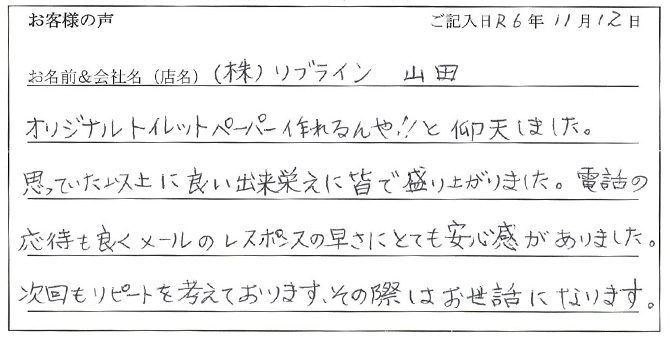 お客様の声 ご記入日R6年11月12日
お名前&会社名(店名)(株)リブライン 山田
オリジナルトイレットペーパー作れるんや!!と仰天しました。
思っていた以上に良い出来栄えに皆で盛り上がりました。電話の
応待も良くメールのレスポンスの早さにとても安心感がありました。
次回もリピートを考えております、その際はお世話になります。